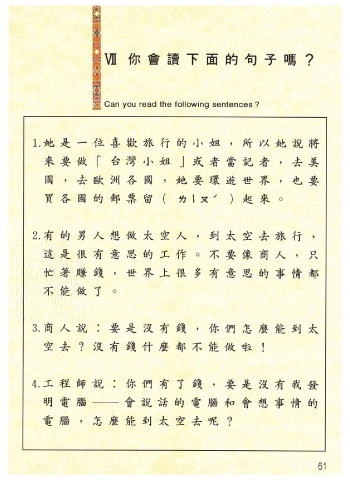 Ⅶ 你會讀下面的句子嗎？
Can you read the following sentences？
1.她是一位喜歡旅行的小姐，所以她說將
來要做「台灣小姐」或者當記者，去美
國，去歐洲各國，她要環遊世界，也要
買各國的郵票留（ㄌㄧㄡˊ）起來。
2.有的男人想做太空人，到太空去旅行，
這是很有意思的工作。不要像商人，只
忙著賺錢，世界上很多有意思的事情都
不能做了。
3.商人說：要是沒有錢，你們怎麼能到太
空去？沒有錢什麼都不能做啦！
4.工程師說：你們有了錢，要是沒有我發
明電腦——會說話的電腦和會想事情的
電腦，怎麼能到太空去呢？
61